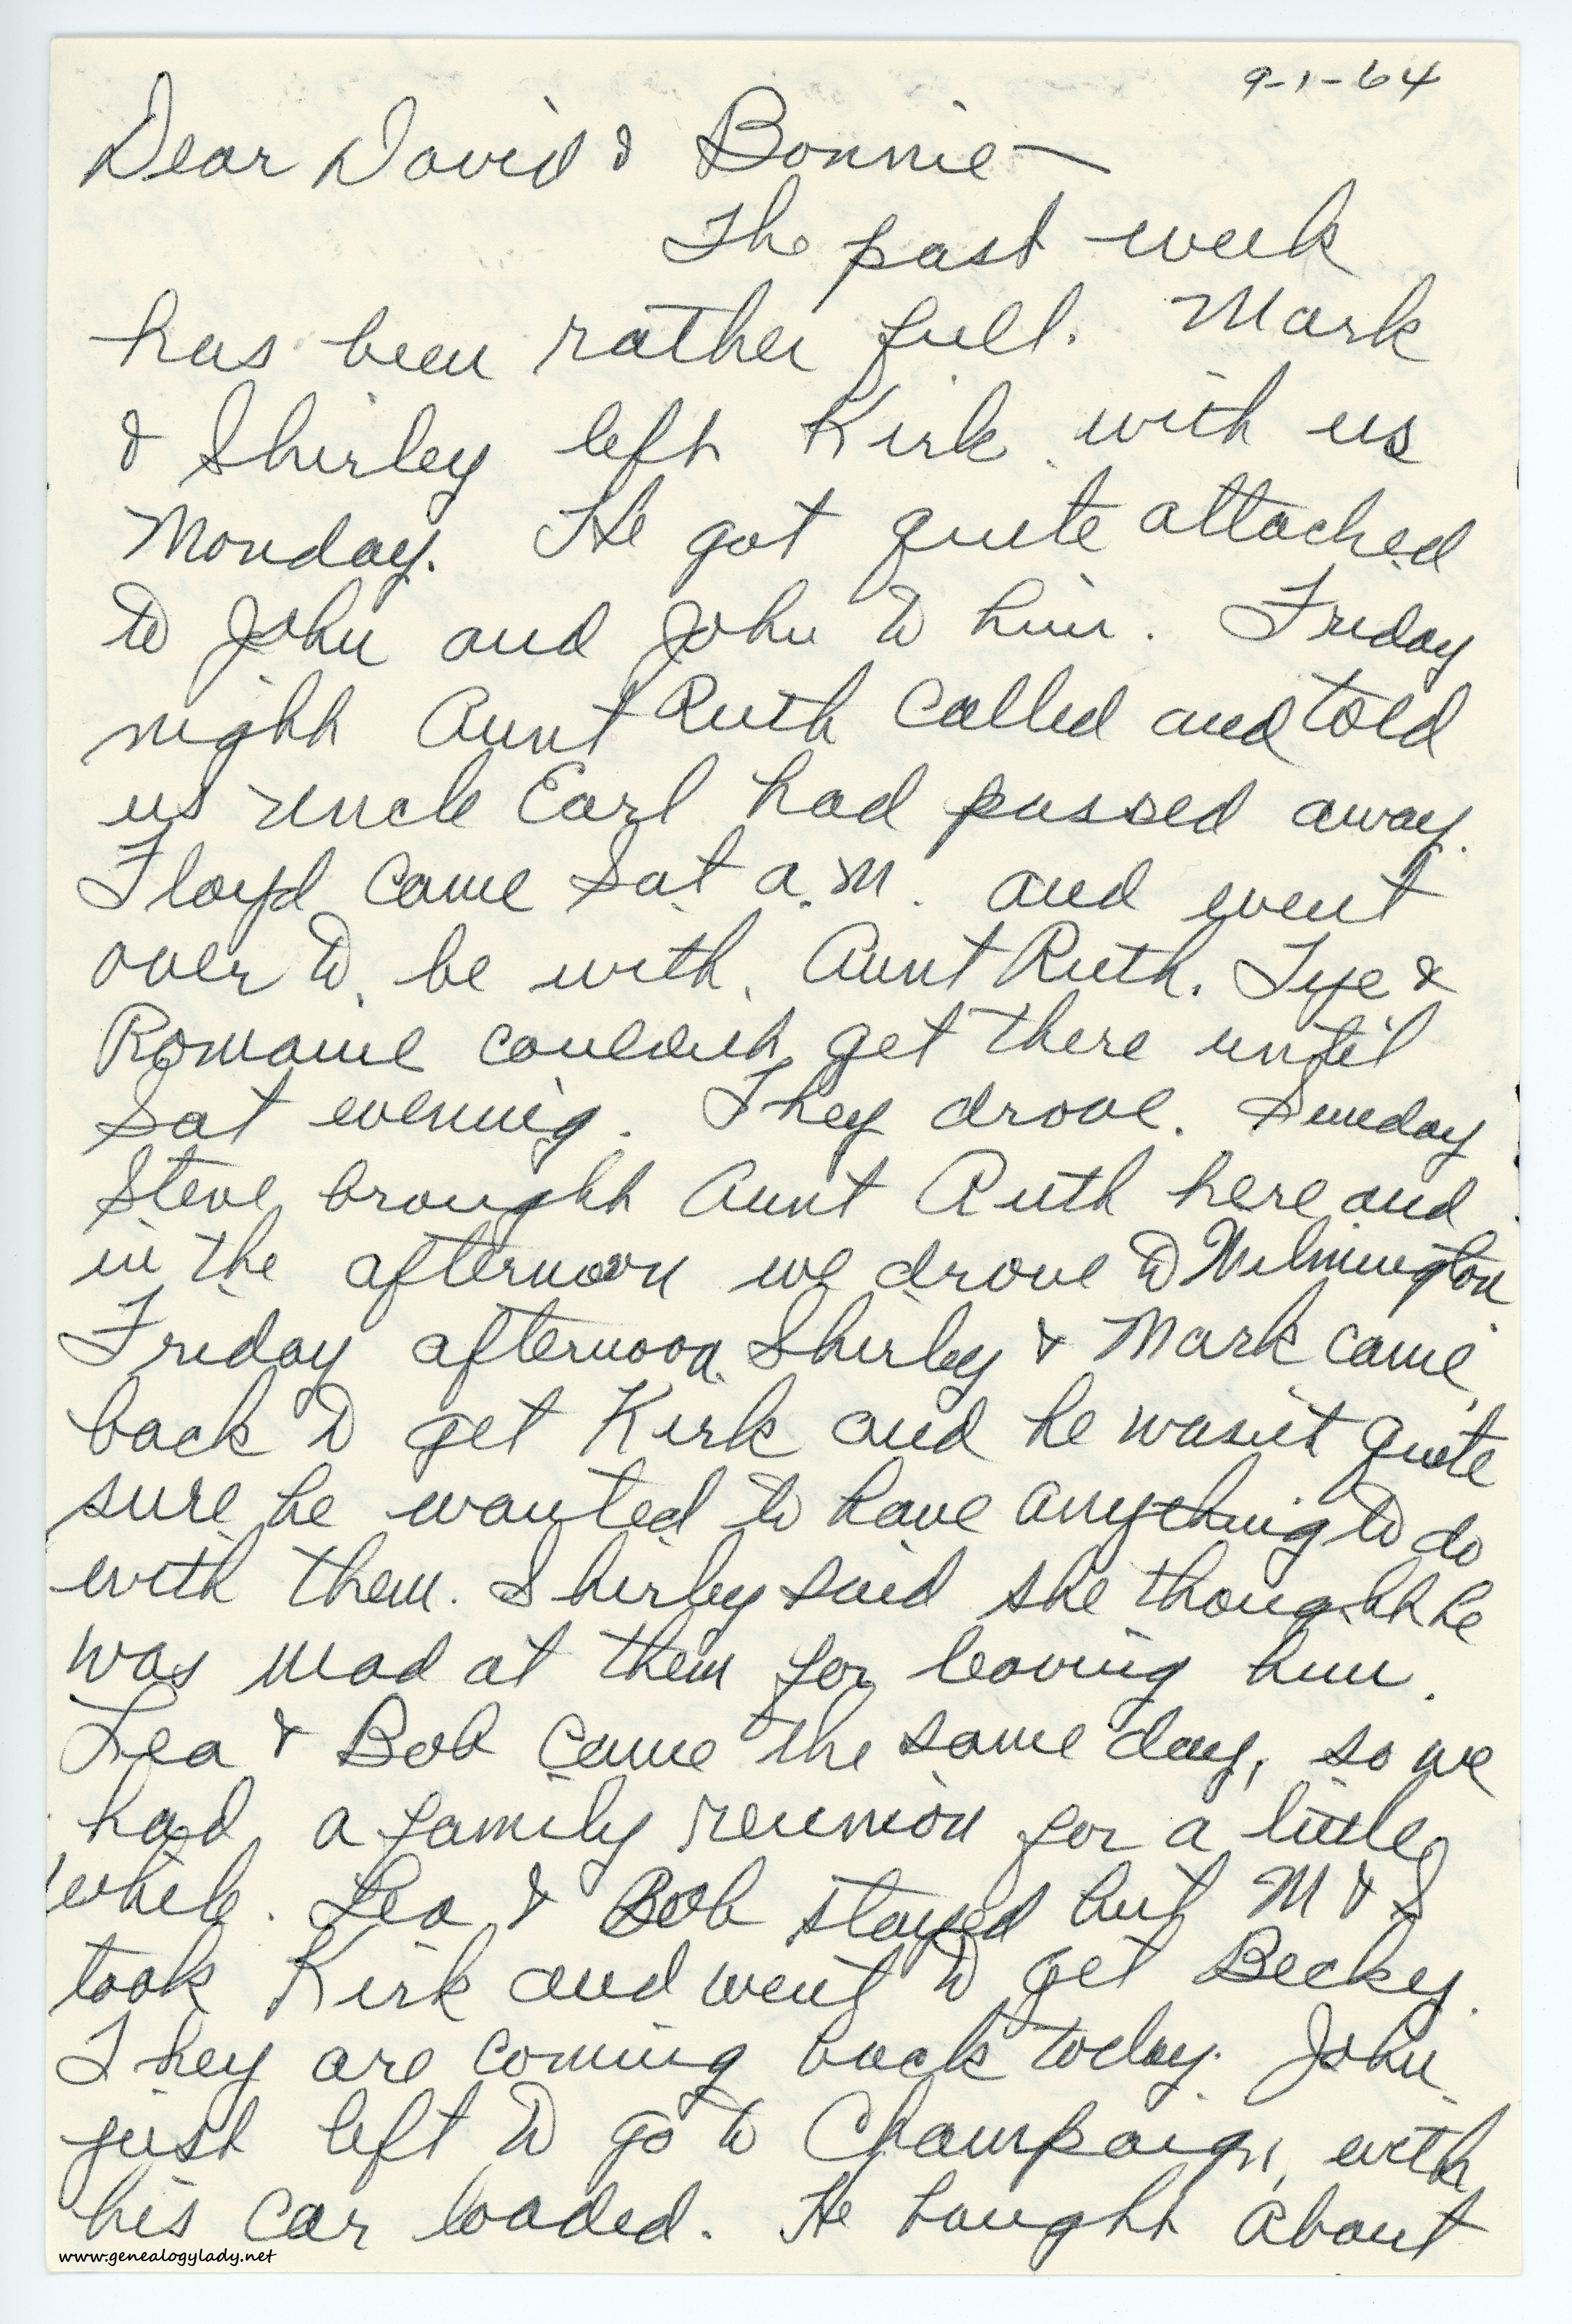 9-1-64
Dear David & Bonnie—
The past week
has been rather full. Mark
& Shirley left Kirk with us
Monday. He got quite attached
to John and John to him. Friday
night Aunt Ruth called and told
us Uncle Earl had passed away.
Floyd came Sat a.m. and went
over to be with Aunt Ruth. Tye &
Romaine couldn't get there until
Sat evening. They drove. Sunday
Steve brought Aunt Ruth here and
in the afternoon we drove to Wilmington
Friday afternoon Shirley & Mark came
back to get Kirk and he wasn't quite
sure he wanted to have anything to do
with them. Shirley said she thought he
was mad at them for leaving him.
Lea & Bob came the same day, so we
had a family reunion for a little
while. Lea & Bob stayed but M & S
took Kirk and went to get Becky.
They are coming back today. John
just left to go to Champaign, with
his car loaded. He bought about
www.genealogylady.net